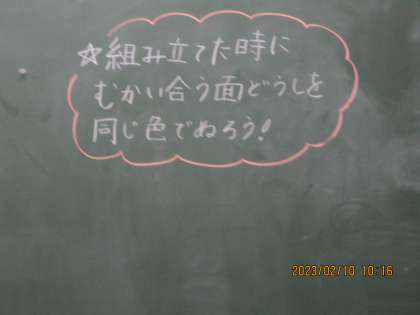 ☆組み立てた時に
むかい合う面どうしを
同じ色でぬろう!
2023/02/10 10:16